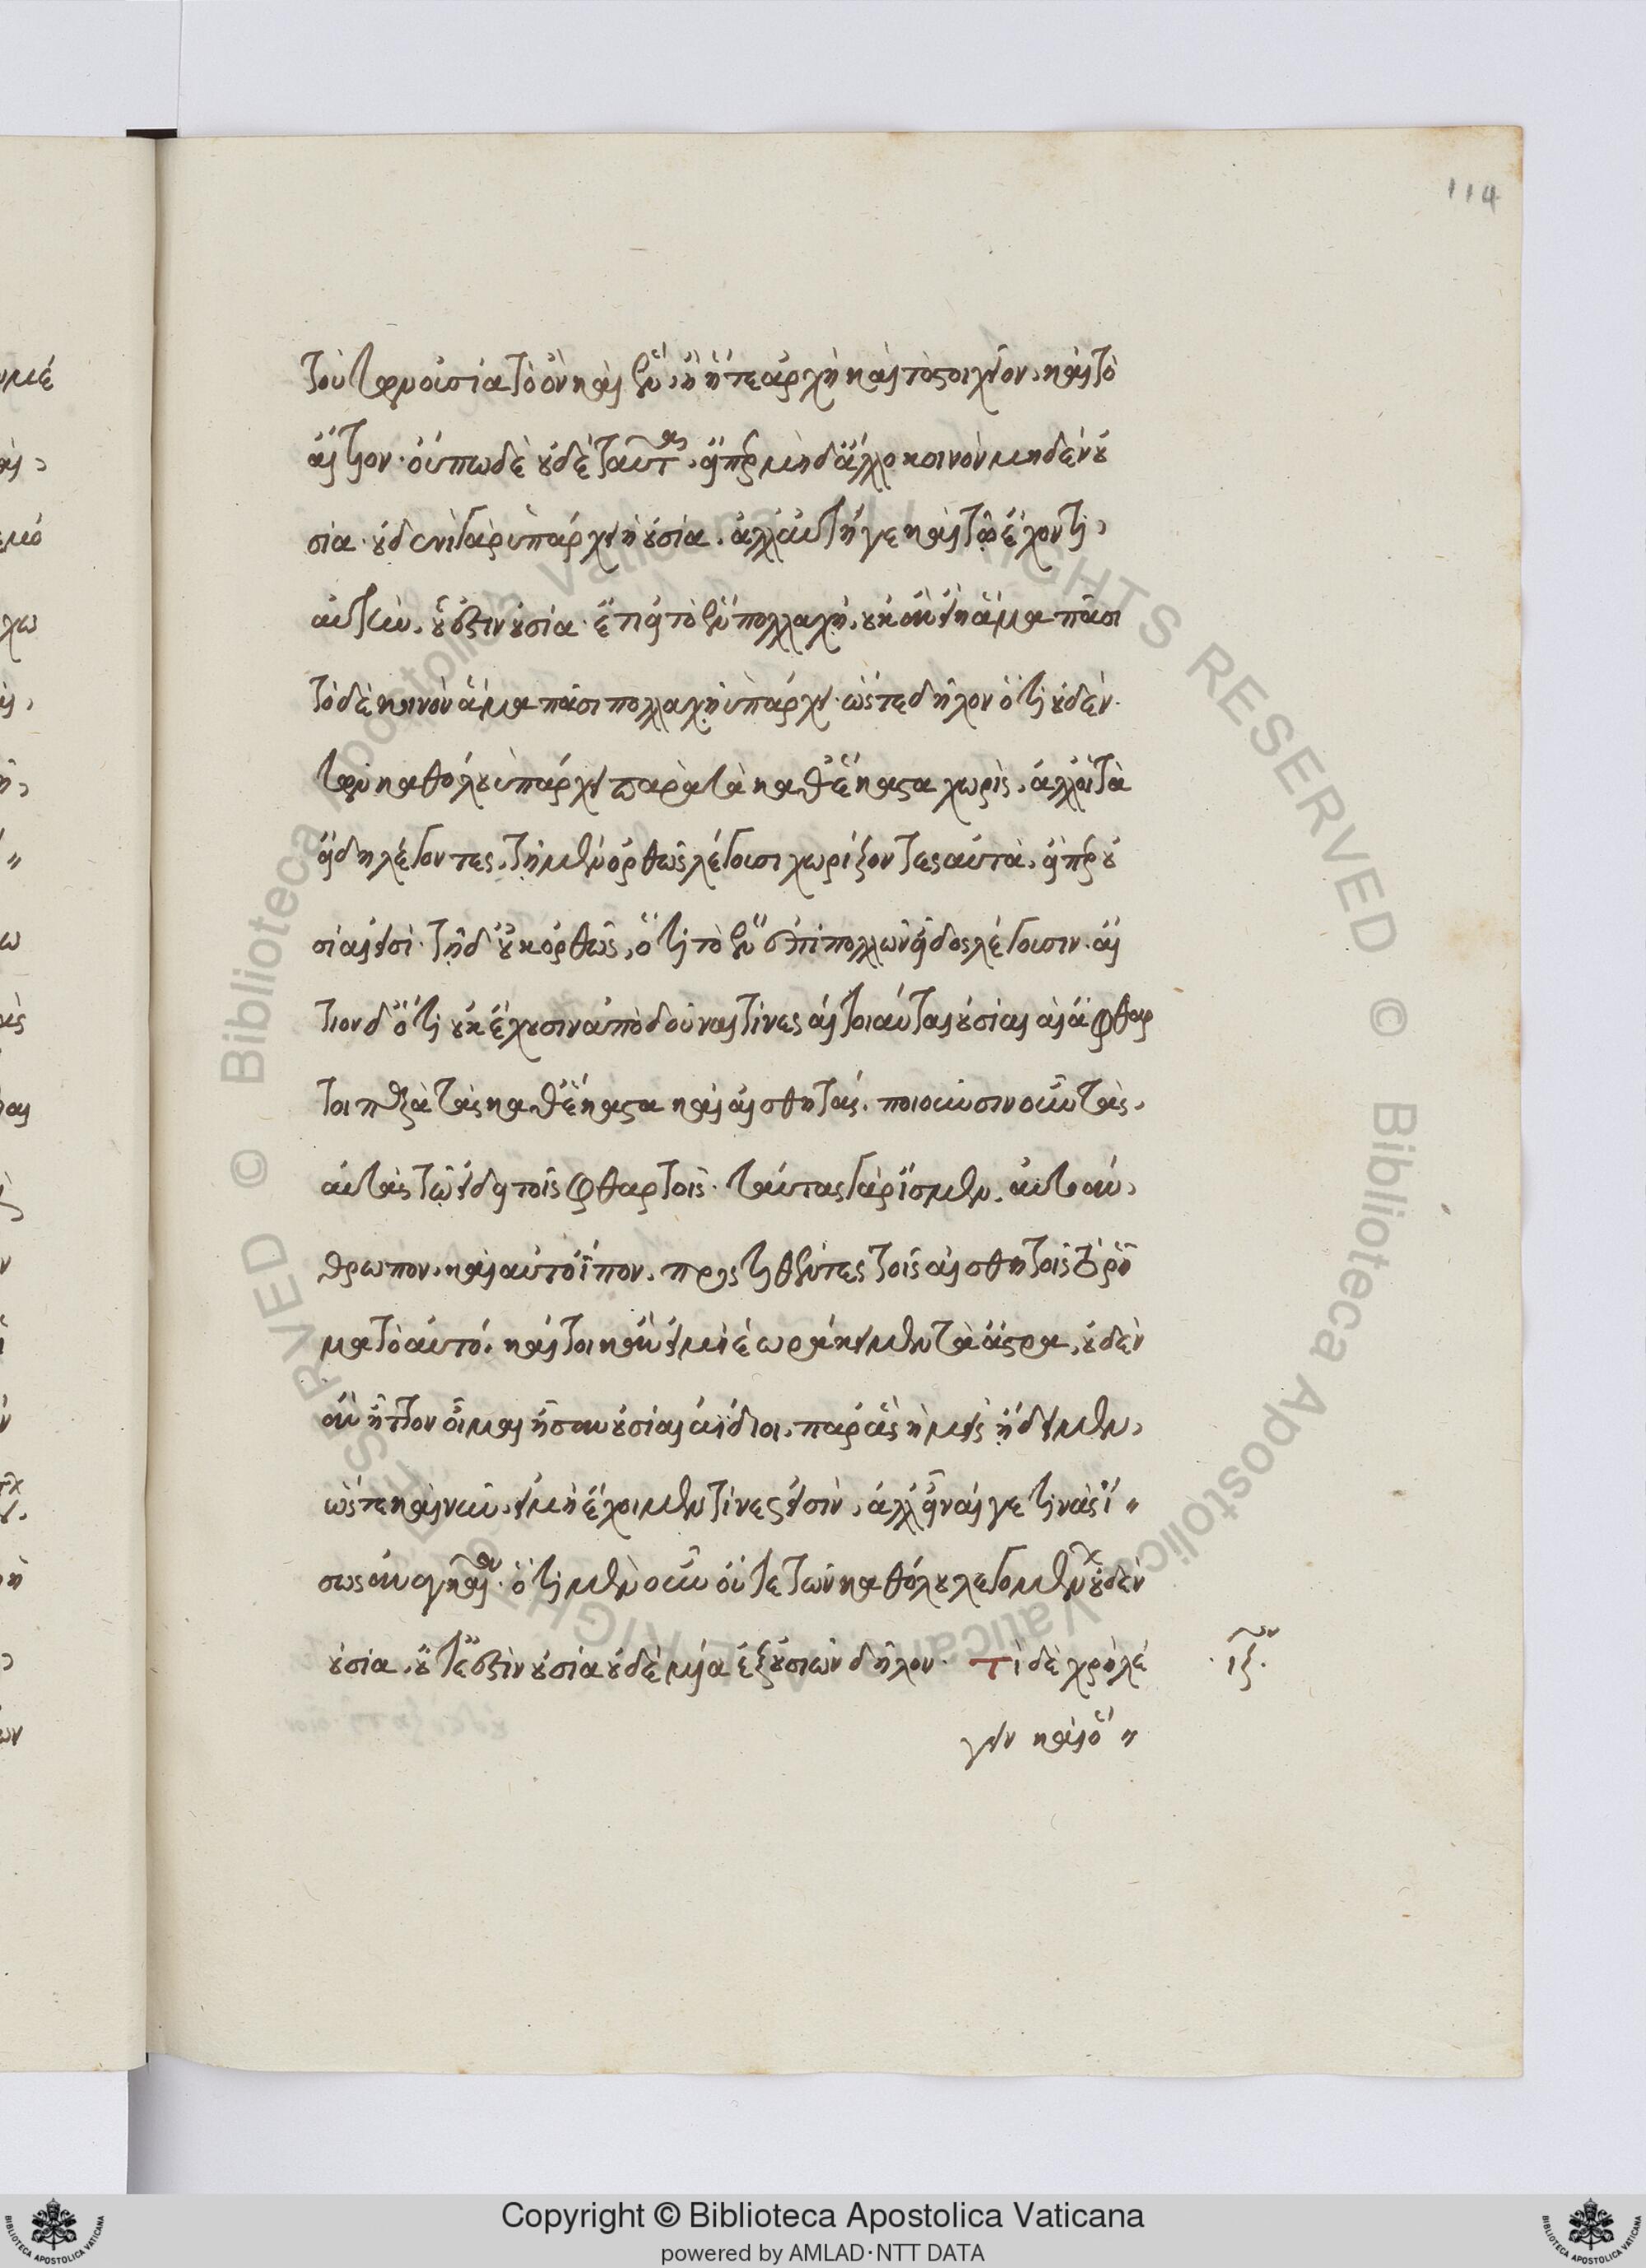 τούτων οὐσία τὸ ὂν καὶ ἕν, ἢ ἥ τε ἀρχὴ καὶ τὸ στοιχεῖον, καὶ τὸ
αἴτιον· οὔπω δὲ οὐδὲ ταῦτα, εἴπερ μὴδ' ἄλλο κοινὸν μηδὲν οὐ
σία· οὐδενὶ γὰρ ὑπάρχει ἡ οὐσία, ἀλλ' αὐτῆ γε καὶ τῷ ἔχοντι,
αὐτὴν, οὗ ἐστὶν οὐσία· ἔτι εἰ τὸ ἓν πολλαχῆ, οὐκ ἂν εἴη ἅμα πᾶσι
τὸ δὲ κοινὸν ἅμα πᾶσι πολλαχῆ ὑπάρχει· ὥστε δῆλον ὅτι οὐδὲν
τῶν καθόλου ὑπάρχει παρὰ τὰ καθ' ἕκαστα χωρὶς, ἀλλ' οἱ τὰ
εἴδη λέγοντες, τῇ μὲν ὀρθῶς λέγουσι χωρίζοντες αὐτὰ, εἴπερ οὐ
σίαι εἰσί· τῇ δ' οὐκ ὀρθῶς, ὅτι τὸ ἓν ἐπὶ πολλῶν εἶδος λέγουσιν· αἴ
τιον δ' ὅτι οὐκ ἔχουσιν ἀποδοῦναι τίνες αἱ τοιαῦται οὐσίαι αἱ ἄφθαρ
τοι παρὰ τὰς καθ' ἕκαστα καὶ αἰσθητάς. ποιοῦσιν οὖν τὰς,
αὐτὰς τῷ εἴδει τοῖς φθαρτοῖς· ταύτας γὰρ ἴσμεν, αὐτοάν,
θρωπον, καὶ αὐτοΐππον, προστιθέντες τοῖς αἰσθητοῖς τὸ ῥῆ
μα τὸ αὐτό. καίτοι κἂν εἰ μὴ ἑωράκειμεν τὰ ἄστρα, οὐδὲν
ἂν ἧττον οἶμαι ἦσαν οὐσίαι ἀΐδιοι, παρ' ἃς ἡμεῖς ᾔδειμεν,
ὥστε καὶ νῦν, εἰ μὴ ἔχοιμεν τίνες εἰσὶν, ἀλλ' εἶναί γε τινὰς ἴ
σως ἀναγκαῖον· ὅτι μὲν οὖν οὔτε τῶν καθόλου λεγομένων οὐδὲν
οὐσία, οὔτε ἐστὶν οὐσία οὐδὲ μία ἐξ οὐσιῶν δῆλον. τί δὲ χρὴ λέ
γειν καὶ ὁ
ιζον
114